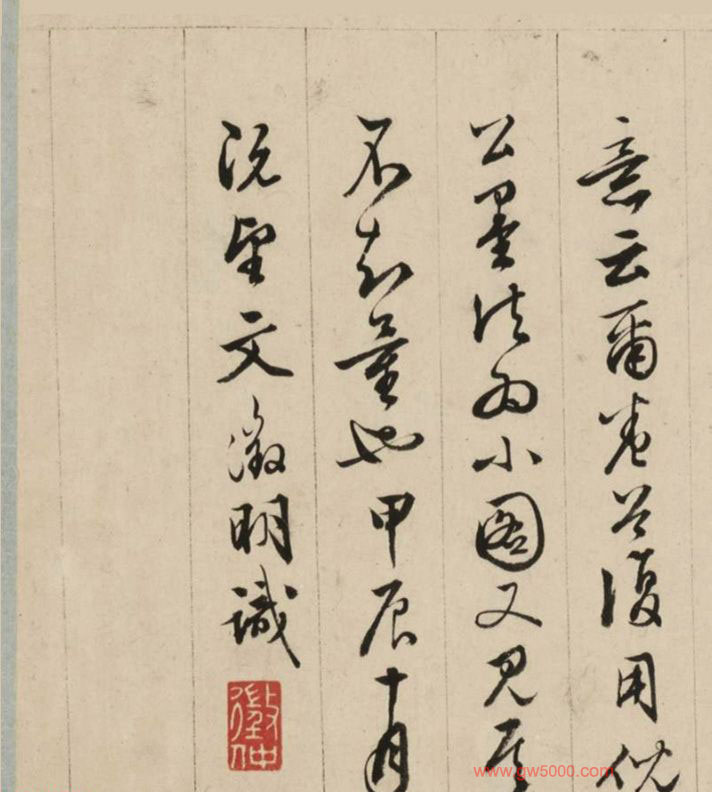 意云爾卷首復用倪
公墨法為小圖又見其
不知量也甲辰十月
既望文徵明識
徵仲
www.gw5000.com